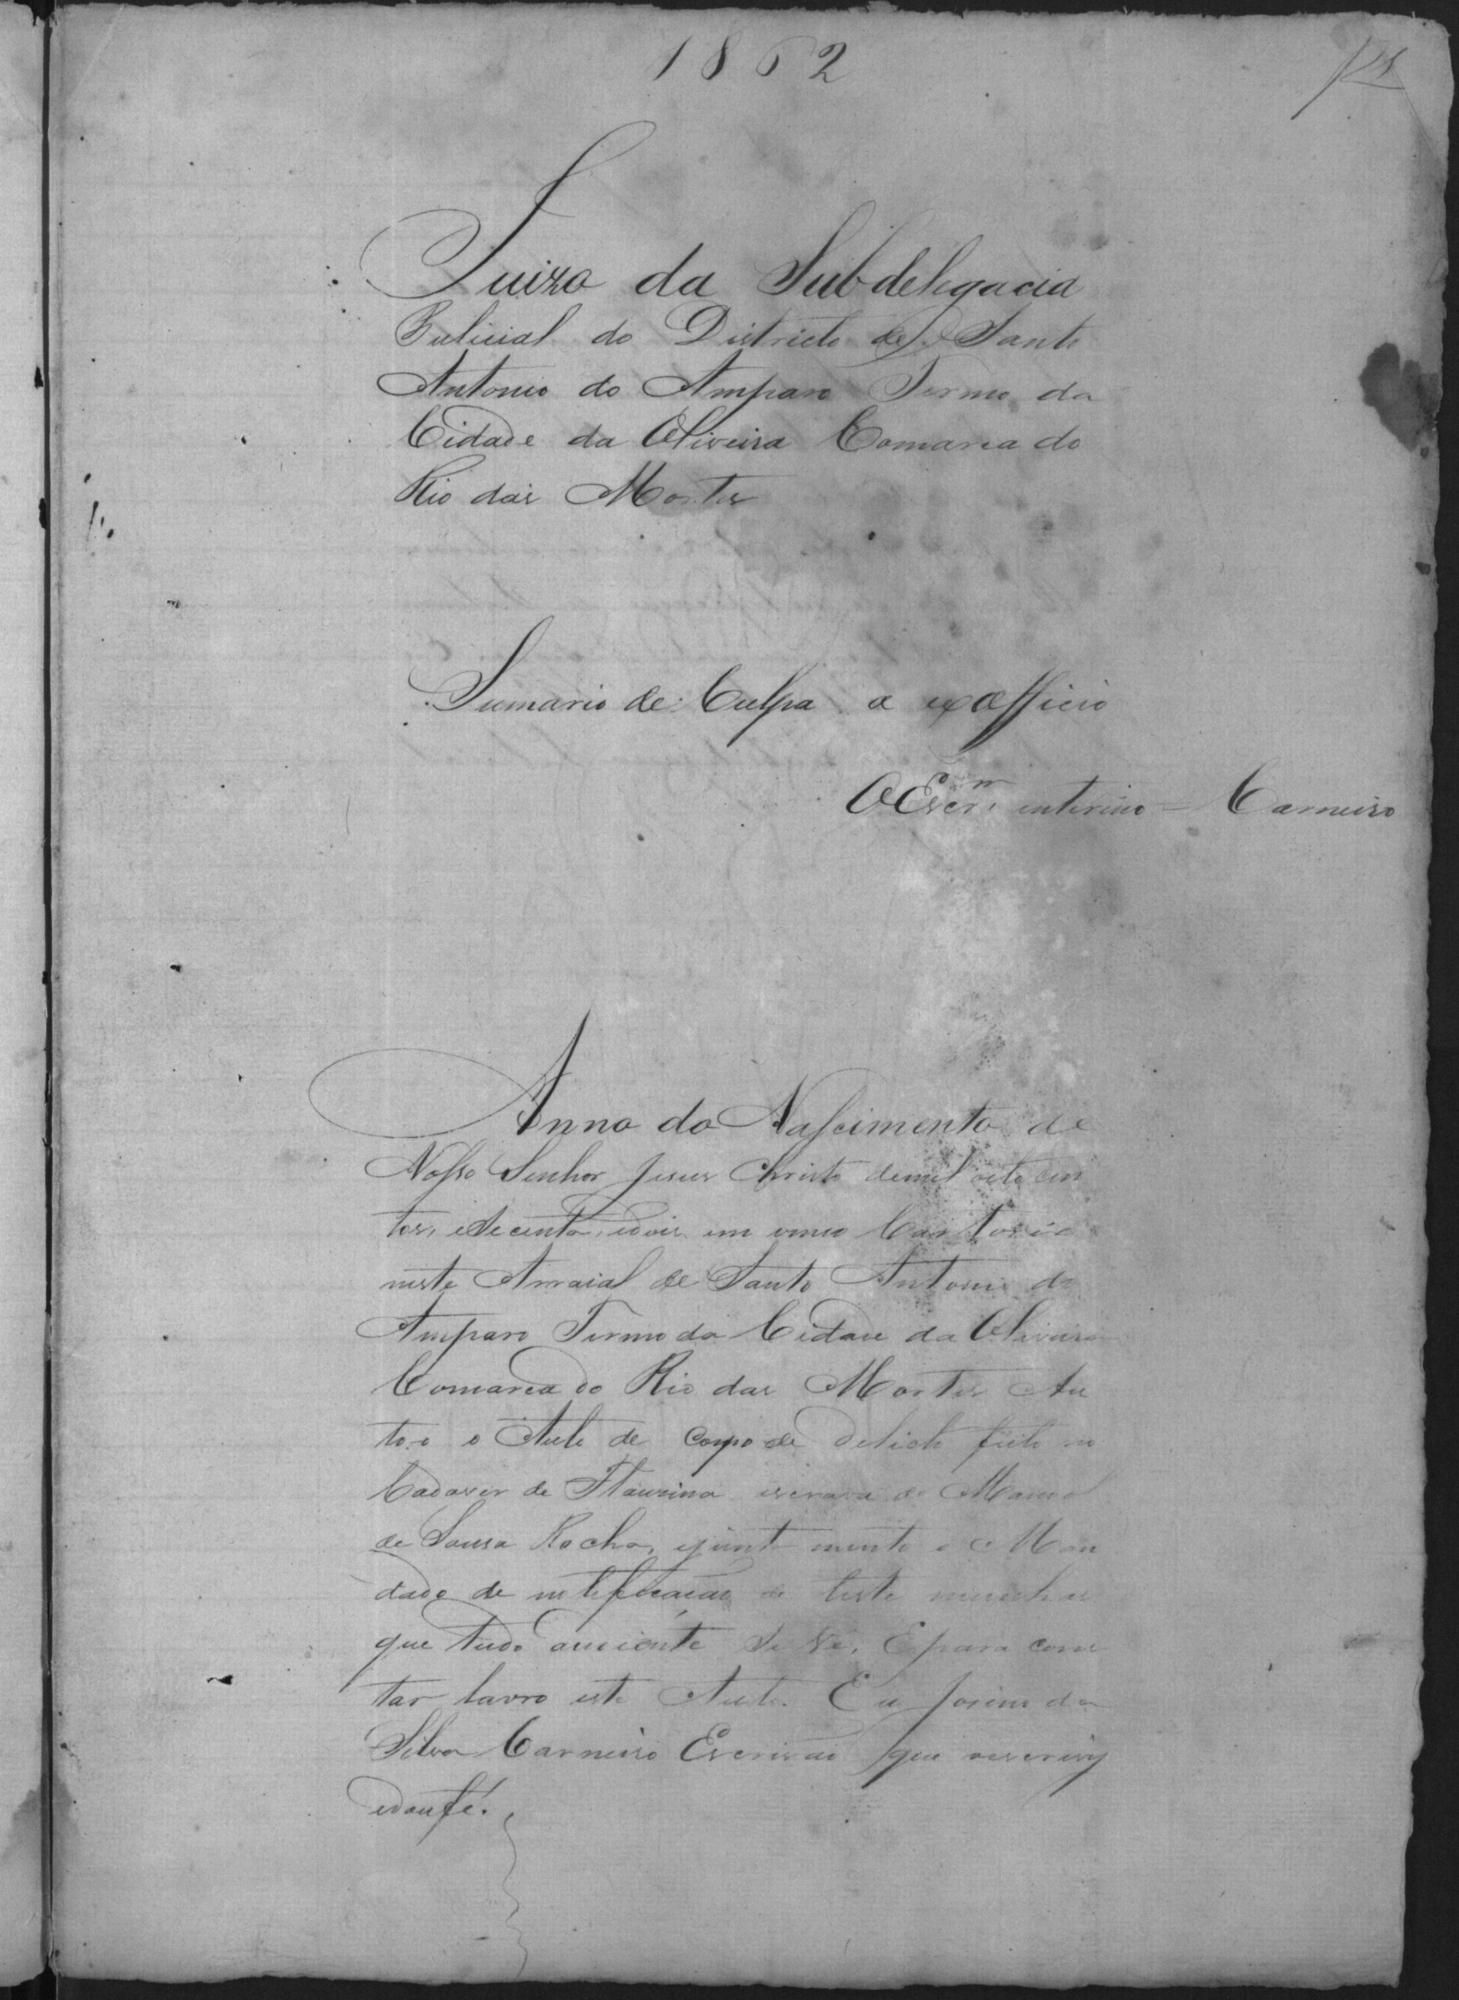 1862
Juizo da Subdelegacia
Pulicial do Districto de Santo
Antonio do Amparo Termo da
Cidade da Oliveira Comarca do
Rio das Mortes
Sumario de Culpa a exofficio
O Escr.m interino = Carneiro
Anno do Nascimento de
Nosso Senhor Jesus Christo demil oito cen
tos, eSecenta, edois em
neste Arraial de Santo Antonio do
Amparo Termo da Cidade da Oliveira
Comarca do Rio das Mortes Au
too o Auto de Corpo de delicto feito no
Cadaver de Flauzina escrava de Manoel
de Sousa Rocha, ejunta mente o Man
dado de notificacao de teste munhas
que tudo adiente se vê, Epara cons
tar lavro este Auto. Eu da
Silva Carneiro Escrivão que oescrevy
edoufé.